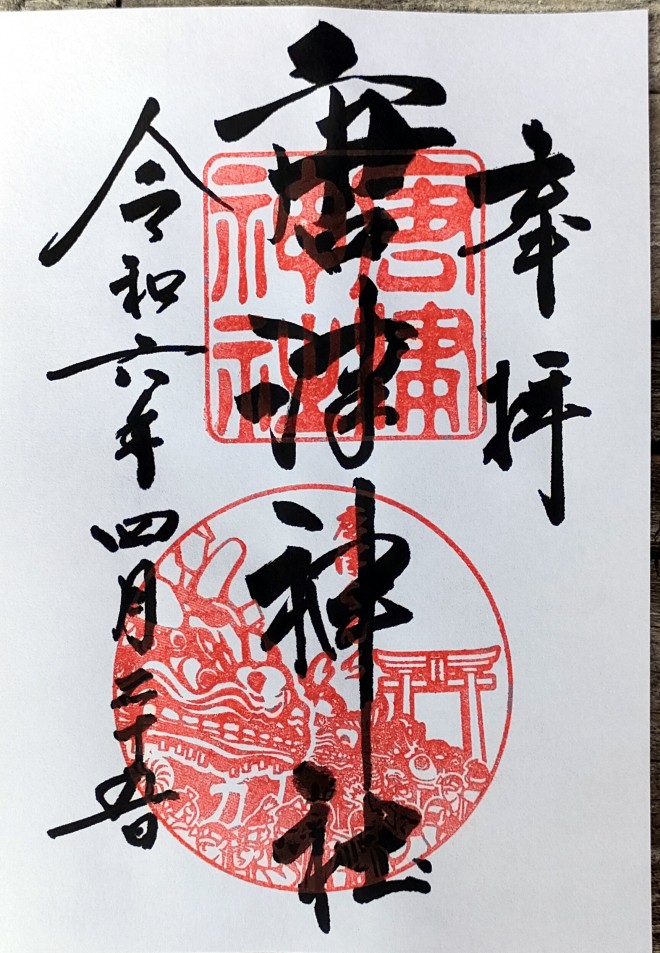 奉拝
唐津神社
唐津
神社
令和六年四月二十五日